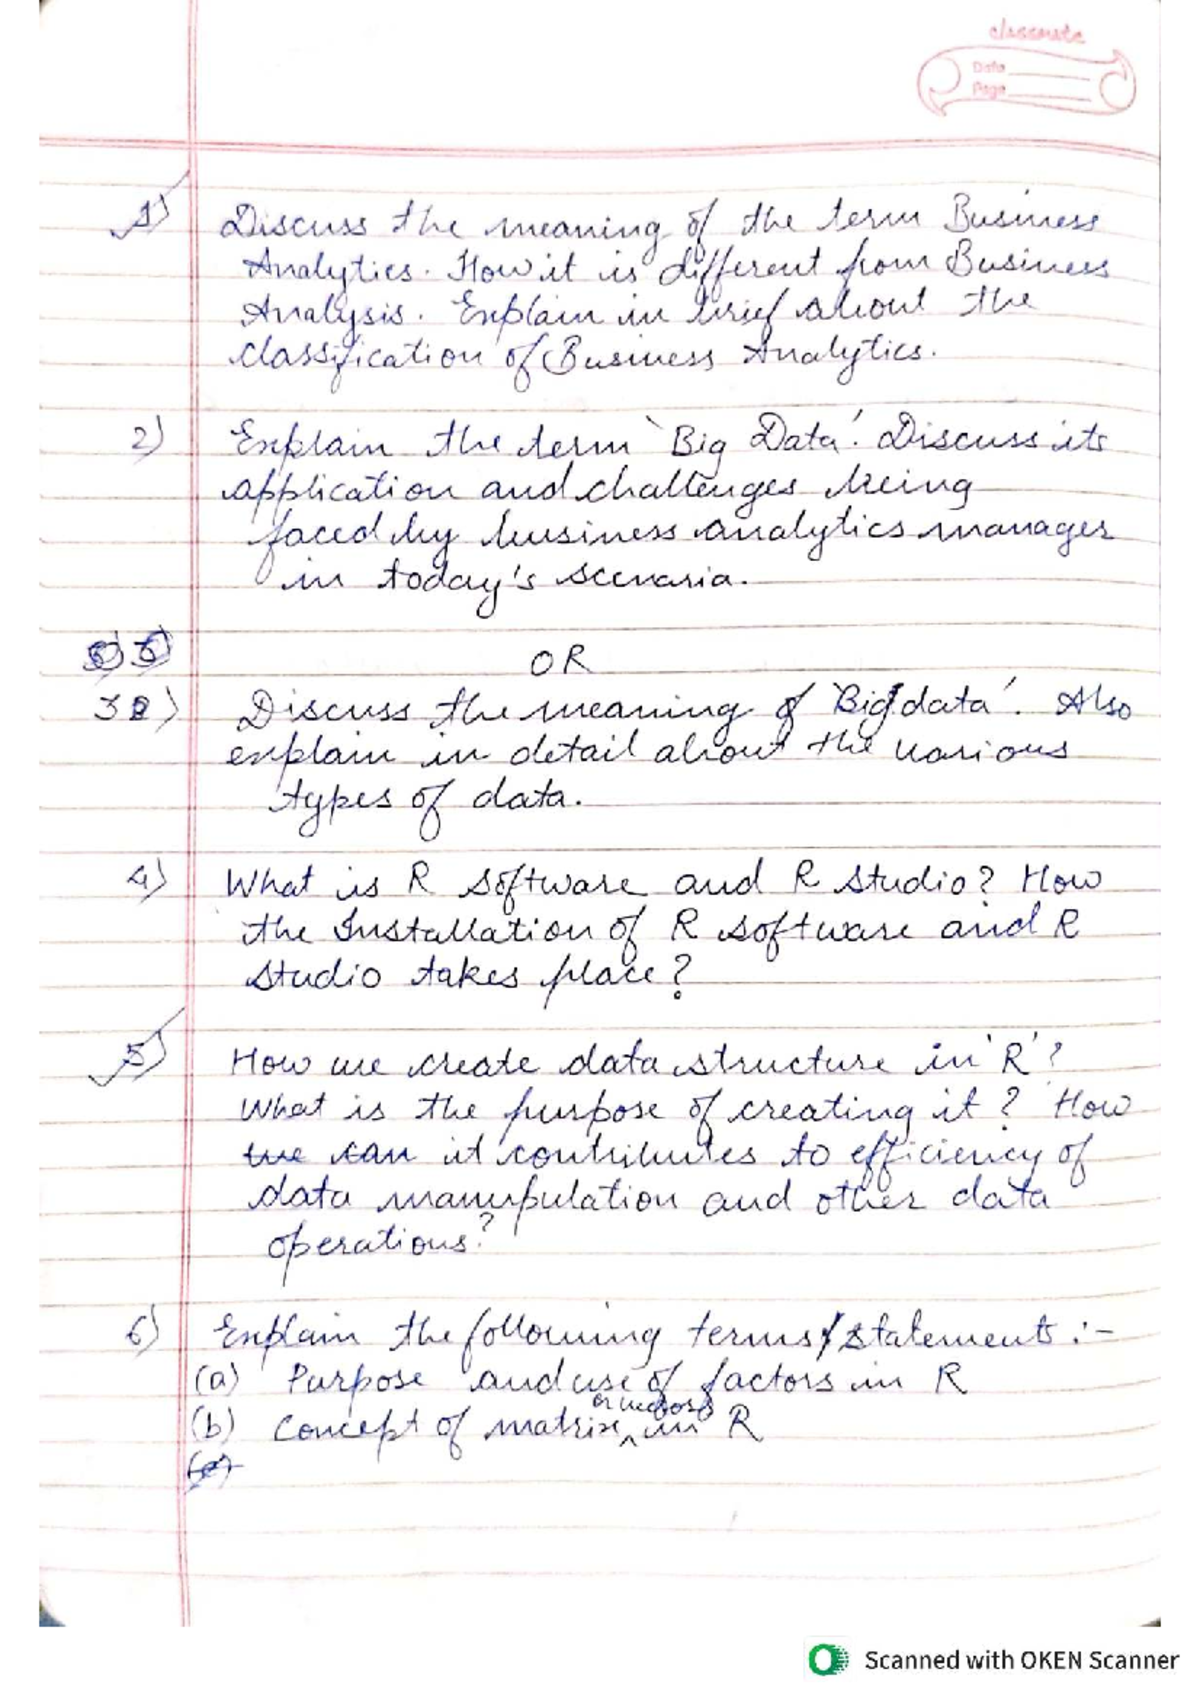 classmate
Date
Page
1) Discuss the meaning of the term Business
Analytics. How it is different from Business
Analysis. Explain in brief about the
classification of Business Analytics.
2) Explain the term 'Big Data'. Discuss its
application and challenges being
faced by business analytics manager
in today's scenaria.
OR
3) Discuss the meaning of 'Big data'. Also
explain in detail about the various
types of data.
4) What is R software and R studio? How
the Installation of R software and R
studio takes place?
5) How we create data structure in 'R'?
What is the purpose of creating it? How
we can it contributes to efficiency of
data manupulation and other data
operations?
6) Explain the following terms/statements :-
(a) Purpose and use of factors in R
(b) Concept of matrix or vectors in R
(c)
Scanned with OKEN Scanner